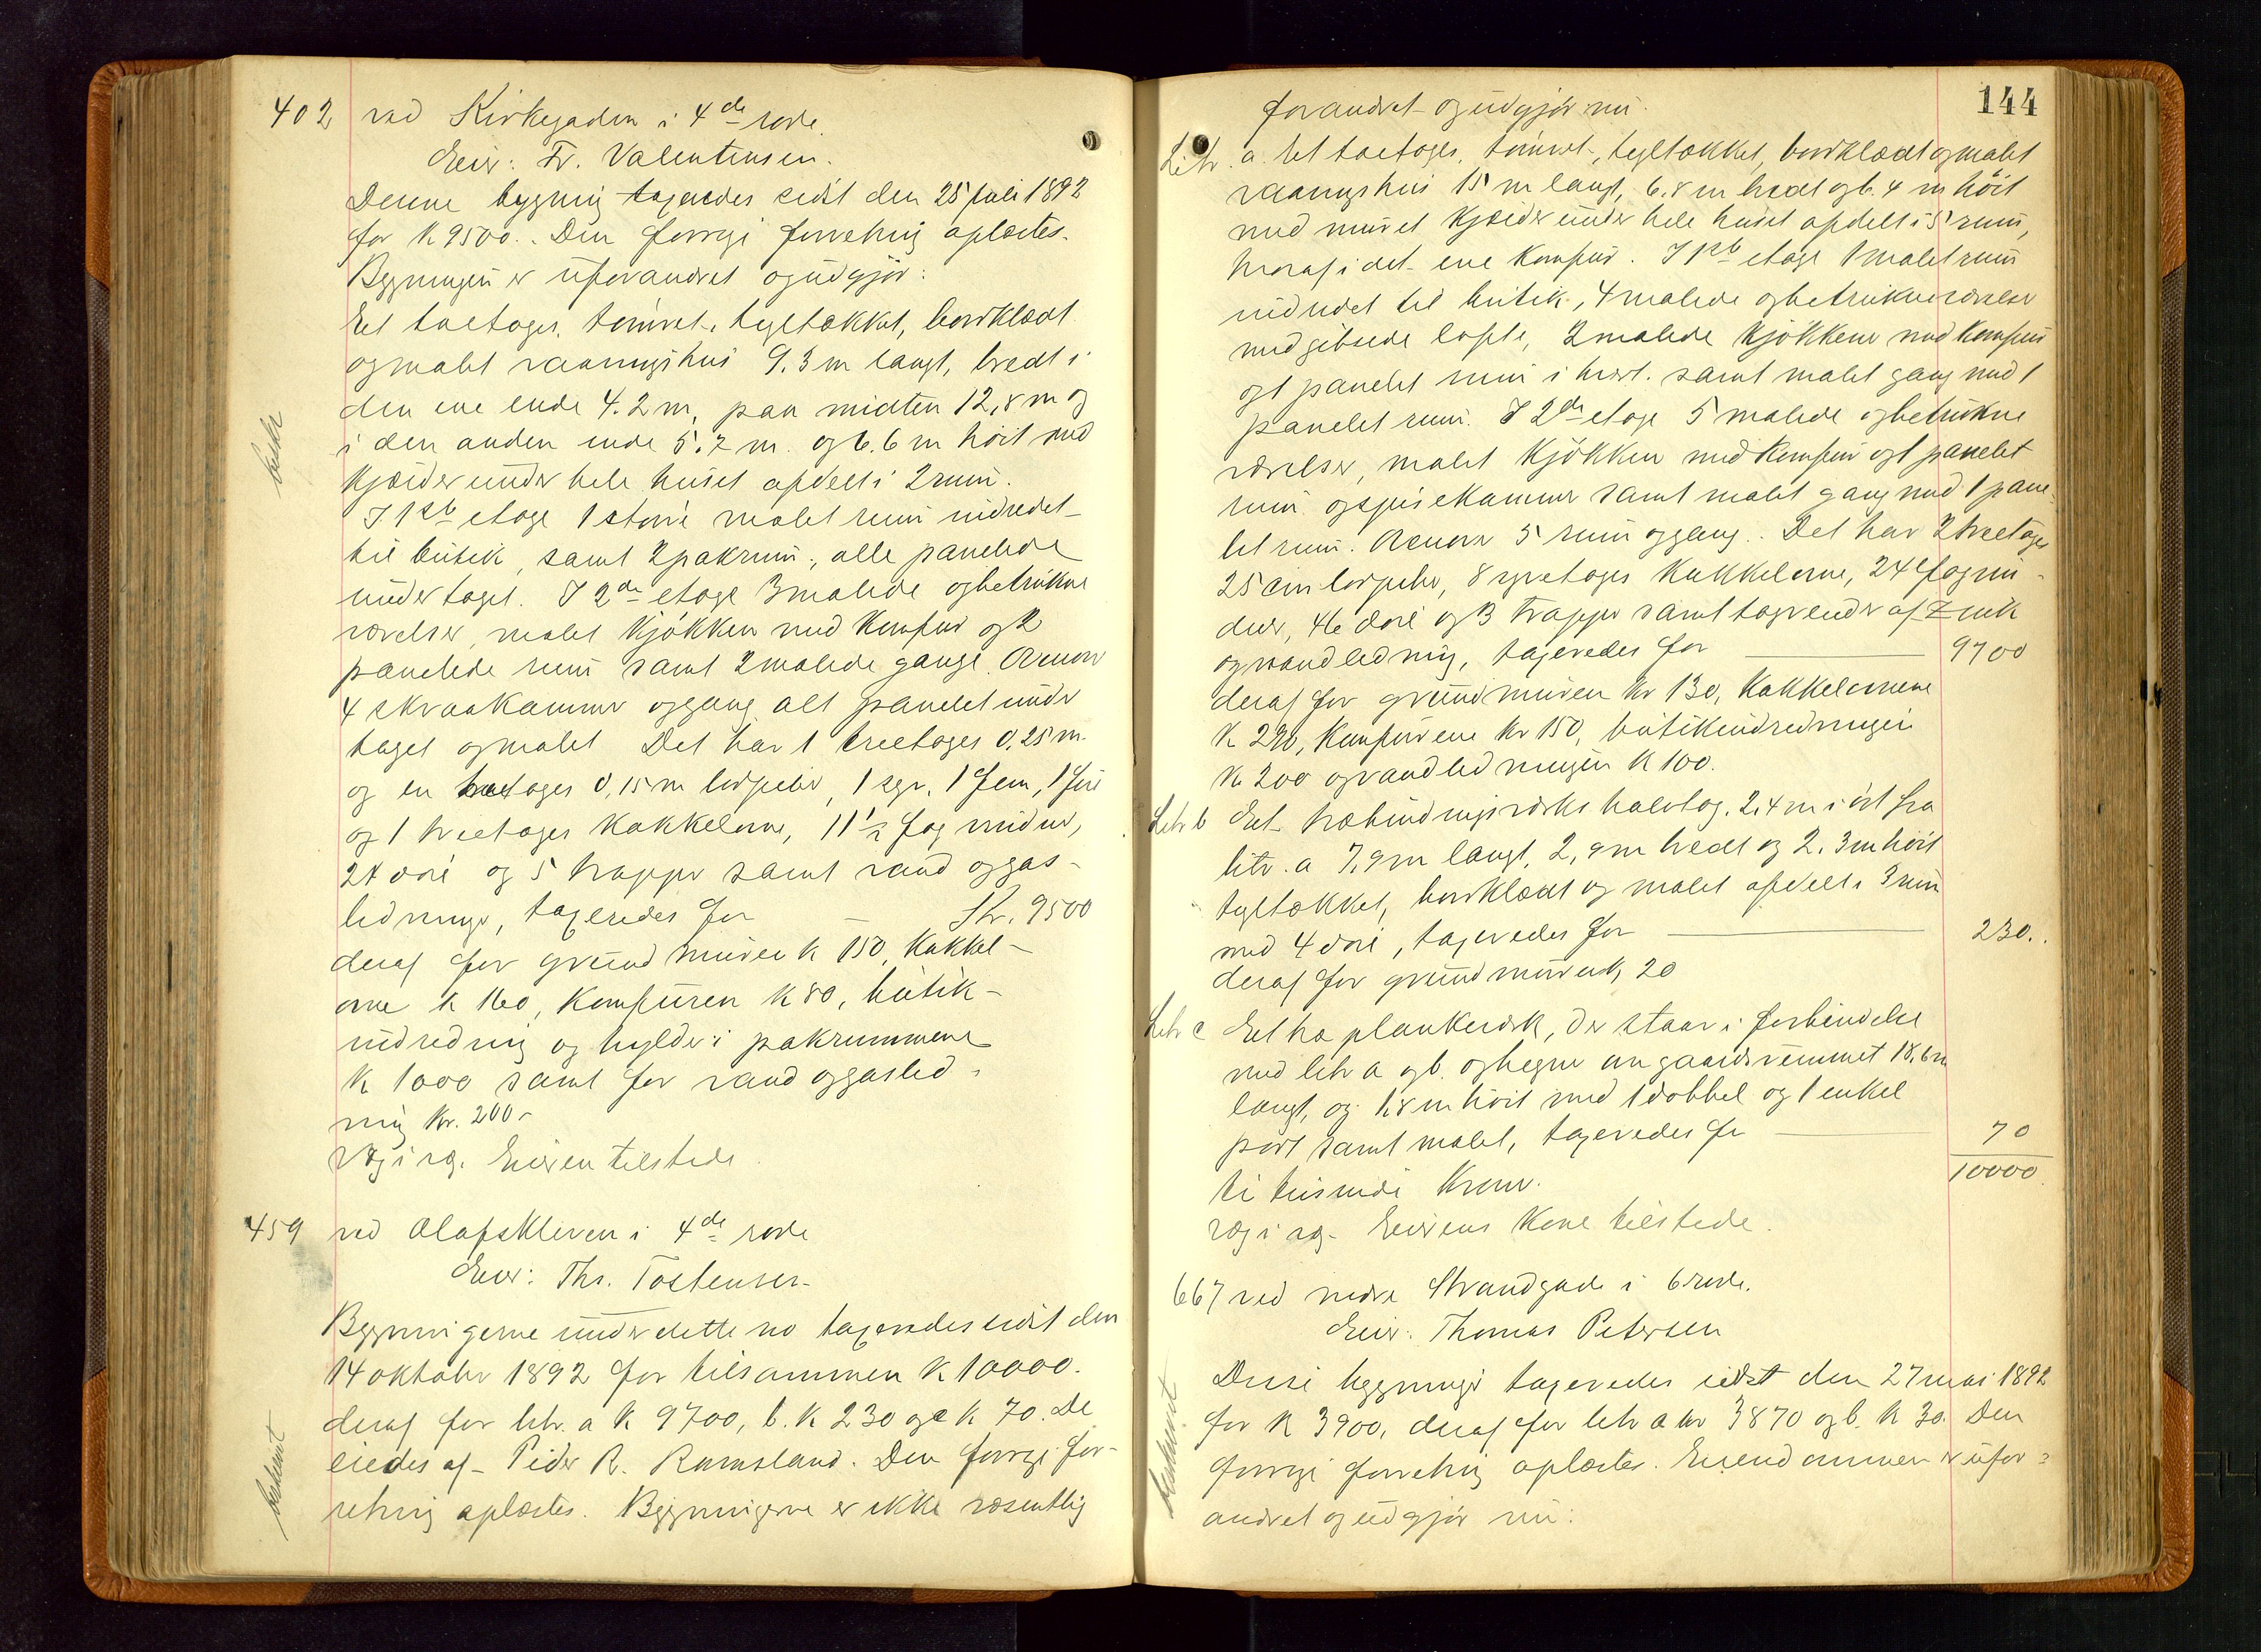 402, ved Kirkegaden i 4de rode.
Eier: Fr. Valentinsen.
Denne bygning taxeredes sidst den 25 juli 1892
for K 9500.. Den forrige forretning oplæstes.
Bygningen er uforandret og udgjør:
Et toetages, tømret, tegltækket, bordklædt
og malet vaaningshus 9.3 m langt, bredt i
den ene ende 4.2 m, paa midten 12,8 m og
i den anden ende 5.7 m. og 6.6 m høit med
kjælder under hele huset afdelt i 2 rum.
I 1ste etage 1 større malet rum indredet
til butik, samt 2 pakrum, alle panelede
under taget. I 2den etage 3 malede og betrukne
værelser, malet kjøkken med komfur og 2
panelede rum samt 2 malede gange. Ovenover
4 skraakammer og gang alt panelet under
taget og malet. Det har 1 treetages 0,25 m
og en treetages 0,15 m lodpiber, 1 sex, 1 fem, 1 fire
og 1 treetages kakkelovne, 11½ fag vinduer,
24 døre og 5 trapper samt vand og gas-
ledninger, taxeredes for — Kr. 9500
deraf for grundmuren k 150, kakkel-
ovne k 160, komfuren k 80, butik-
indredning og hylder i pakrummene
K 1000 samt for vand og gasled-
ning kr. 200-
Væg i væg. Eieren tilstede.
459 ved Olafskleven i 4de rode
Eier: Ths. Tostensen
Bygningerne under dette no taxeredes sidst den
14 oktober 1892 for tilsammen K 10000.
deraf for litr. a K 9700, b. K 230 og c K 70. De
eiedes af Peder R. Ramsland. Den forrige for-
retning oplæstes. Bygningerne er ikke væsentlig
144
forandret og udgjør nu:
Litr. a. Et toetages, tømret, tegltækket, bordklædt og malet
vaaningshus 15 m langt, 6.8 m bredt og 6.4 m høit
med muret kjælder under hele huset afdelt i 5 rum,
hvoraf i det ene komfur. I 1ste etage 1 malet rum
indredet til butik, 4 malede og betrukne værelser
med gibsede lofte, 2 malede kjøkkener med komfur
og 1 panelet rum i hvert. samt malet gang med 1
panelet rum. I 2den etage 5 malede og betrukne
værelser, malet kjøkken med komfur og 1 panelet
rum og spisekammer samt malet gang med 1 pane-
let rum. Ovenover 5 rum og gang. Det har 2 treetages
25 cm lodpiber, 8 syvetages kakkelovne, 24 fag vin-
duer, 46 døre og 3 trapper samt tagrender af zink
og vandledning, taxeredes for — 9700
deraf for grundmuren kr 130, kakkelovnene
K 290, komfurene kr 150, butikindredningen
K 200 og vandledningen K 100.
Litr b Et træbindingsværks halvtag, 2.4 m i øst fra
litr. a 7,9 m langt, 2,9 m bredt og 2.3 m høit
tegltækket, bordklædt og malet afdelt i 3 rum
med 4 døre, taxeredes for — 230..
deraf for grundmuren k, 20
Litr c Et træ plankeværk, der staar i forbindelse
med litr a og b. og hegner om gaardsrummet 18,6 m
langt, og 1,8 m høit med 1 dobbel og 1 enkel
port samt malet, taxeredes for — 70
ti tusinde kroner. 10000
Væg i væg. Eierens kone tilstede.
667 ved nedre Strandgade i 6 rode.
Eier: Thomas Petersen
Disse bygninger taxeredes sidst den 27 mai 1892
for K 3900, deraf for litr a kr 3870 og b. K 30. Den
forrige forretning oplæstes. Eiendommen er ufor-
andret og udgjør nu: